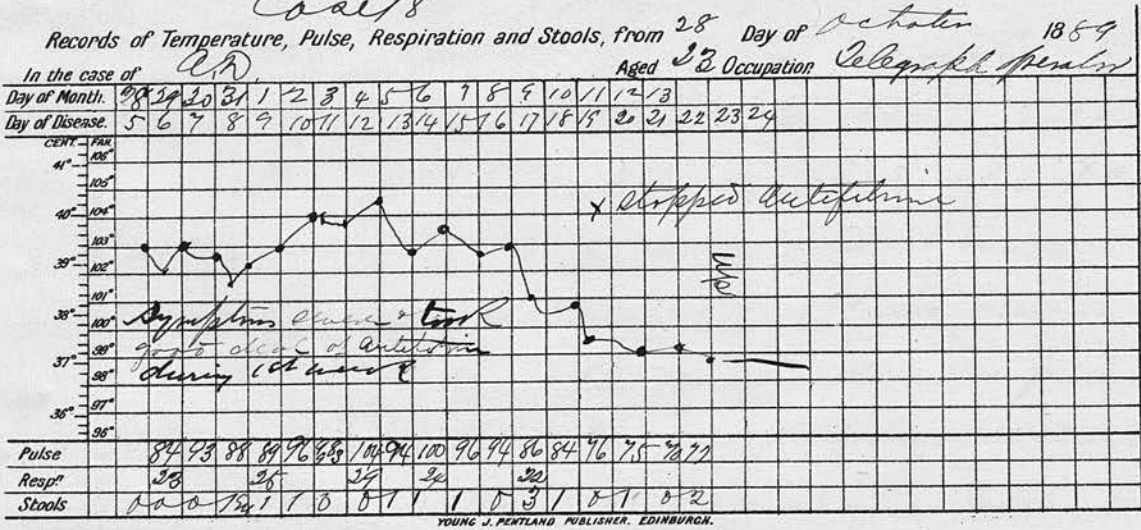 Case 18
Records of Temperature, Pulse, Respiration and Stools, from 28 Day of 1889
In the case of A.D. Aged 23 Occupation Telegraph operator
Day of Month. 28 29 30 31 1 2 3 4 5 6 7 8 9 10 11 12 13
Day of Disease. 5 6 7 8 9 10 11 12 13 14 15 16 17 18 19 20 21 22 23 24
CENT. FAH.
106°
41°
105°
40° 104°
x stopped
103°
39° 102°
Up
101°
38° 100°
Symptoms severe & took
99°
good deal of
37°
during 1st week
98°
97°
36°
96°
Pulse 84 93 88 89 96 104 94 100 96 94 86 84 76 75 70 72
Resp. 23 25 29 24 22
Stools 0 0 0 1 1 0 0 1 1 1 0 3 1 0 1 0 2
YOUNG J. PENTLAND PUBLISHER. EDINBURGH.